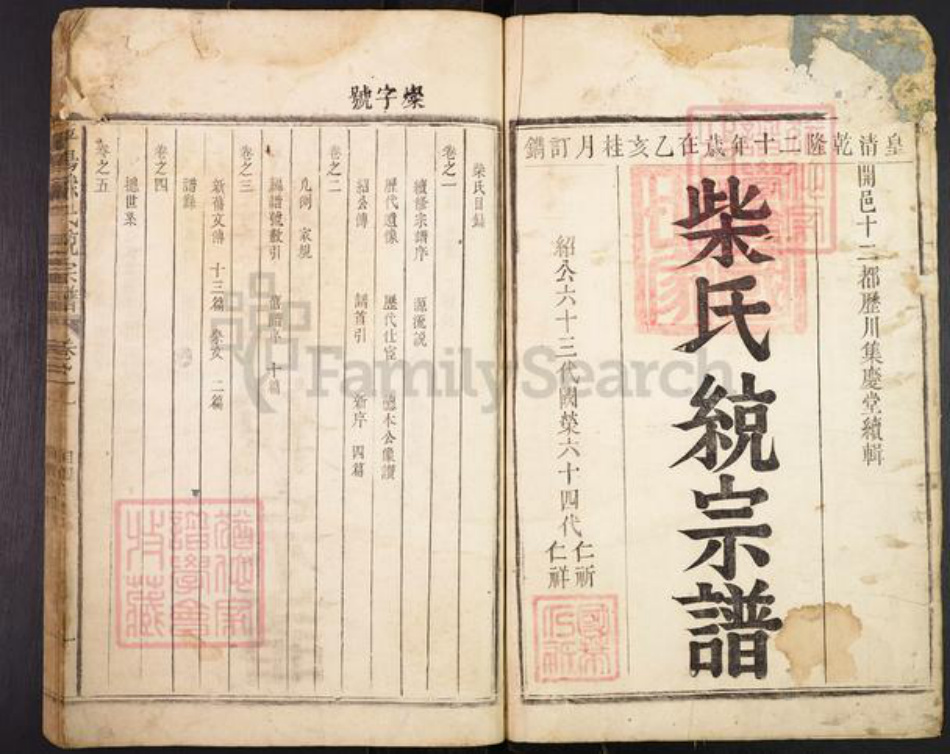 皇清乾隆二十年歲在乙亥桂月訂鐫
開邑十二都歷川集慶堂續輯
柴氏統宗譜
紹公六十三代國榮六十四代仁祈仁祥
燦字號
柴氏目錄
卷之一
續修宗譜序 源流說
歷代遺像 歷代仕宦 德本公像讚
紹公傳 譜首引 新序 四篇
卷之二
凡例 家規
編譜號數引 舊譜序 十篇
卷之三
新舊文傳 十三篇 二篇
譜錄
卷之四
總世系
卷之五
氏統宗譜
FamilySearch